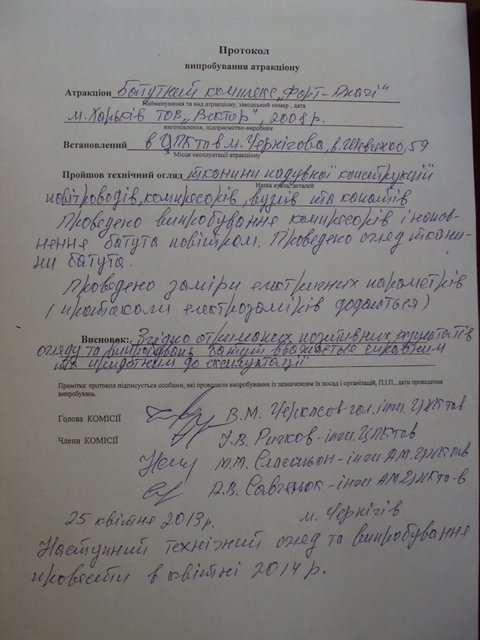 Протокол
випробування атракціону
Атракціон Батутний комплекс „Форт-Апачі"
Найменування та вид атракціону, заводський номер , дата
м. Харьків ТОВ „Вектор", 2008 р.
виготовлення, підприємство-виробник
Встановлений в ЦПКтаВ м. Чернігова, в. Шевченко, 59
Місце експлуатації атракціону
Пройшов технічний огляд тканини надувної конструкції
Назва вузла, деталей
повітроводів, компресорів, вузлів та канатів
Проведено випробування компресорів і напов-
нення батута повітрям. Проведено огляд ткани-
ни батута.
Проведено заміри електричних параметрів
(протоколи електрозамірів додаються)
Висновок: Згідно отриманих позитивних результатів
огляду та випробувань батут вважається справним
та придатним до експлуатації
Примітка: протокол підписується особами, які проводили випробування із зазначенням їх посад і організацій, П.І.П., дата проведення
випробувань.
Голова КОМІСІЇ В.М. Черкасов-гол. інж. ЦПКтаВ
Члени КОМІСІЇ Ричков-інж. ЦПКтаВ
М.М. інж АМ ЦПКтаВ
А.В. Савченок-інж АМ ЦПКта-В
25 квітне 2013 р. м. Чернігів
Наступний технічний огляд та випробування
провести в квітні 2014 р.